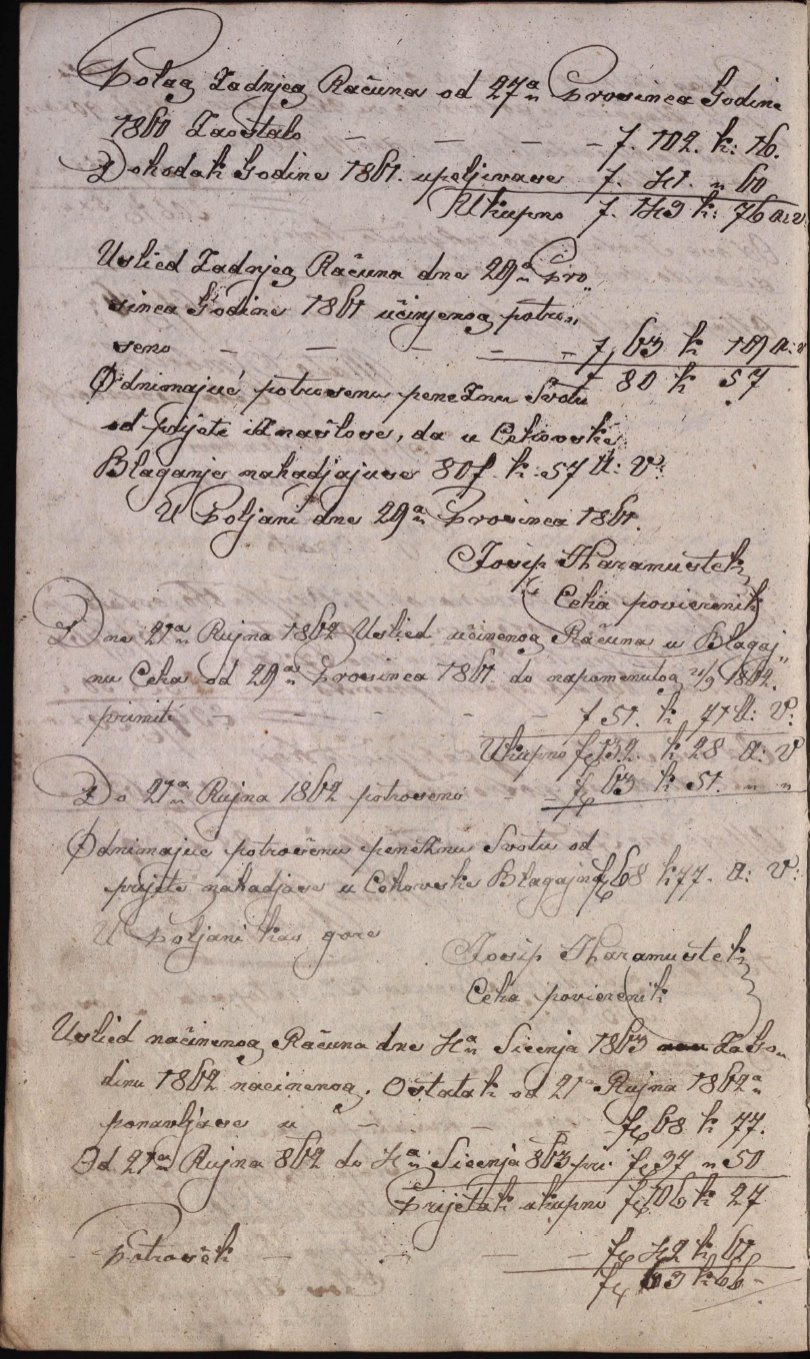 Polag Zadnjeg Računa od 27ª Prosinca Godine
1860 Zaostalo — — — f. 102. k: 16.
Dohodak Godine 1861. upeljivase f. 41. „ 60
Ukupno f. 143 k: 76 a: v:
Uslied Zadnjeg Računa dne 29ª Pro„
sinca Godine 1861 učinjenog potro„
seno — — — — — f. 63 k 19 a: v
Odnimajuć potrosenu peneznu Svotu f 80 k 57
od prijete iznaslose, da u Cehovske
Blaganje nahadjajuse 80f. k: 57 A: V:
U Poljani dne 29ª Prosinca 1861.
Josip Haramustek
Ceha povierenik
Dne 21ª Rujna 1862 Uslied učinenog Računa u Blagaj„
nu Ceha od 29ª Prosinca 1861. do napomenutog 21/9 1862.
primiti — — — — f 51. k 71 A: V:
Ukupno f 132. k 28 A: V
Do 21ª Rujna 1862 potroseno f 63 k 51. „ „
Odnimajuć potrosenu peneznu Svotu od
prijete nahadjase u Cehovske Blagajne f 68 k 77. A: V:
U Poljani kao gore
Josip Haramustek
Ceha povierenik
Uslied načinenog Računa dne 4ª Siecnja 1863 Za Go„
dinu 1862 nacinenog. Ostatak od 21ª Rujna 1862ª
ponavljase u — — — f 68 k 77.
Od 21ª Rujna 862 do 4ª Siecnja 863 pri. f 37 „ 50
Prijetak ukupno f 106 k 27
Potrosek — — — f 42 k 61
f 63 k 66 —